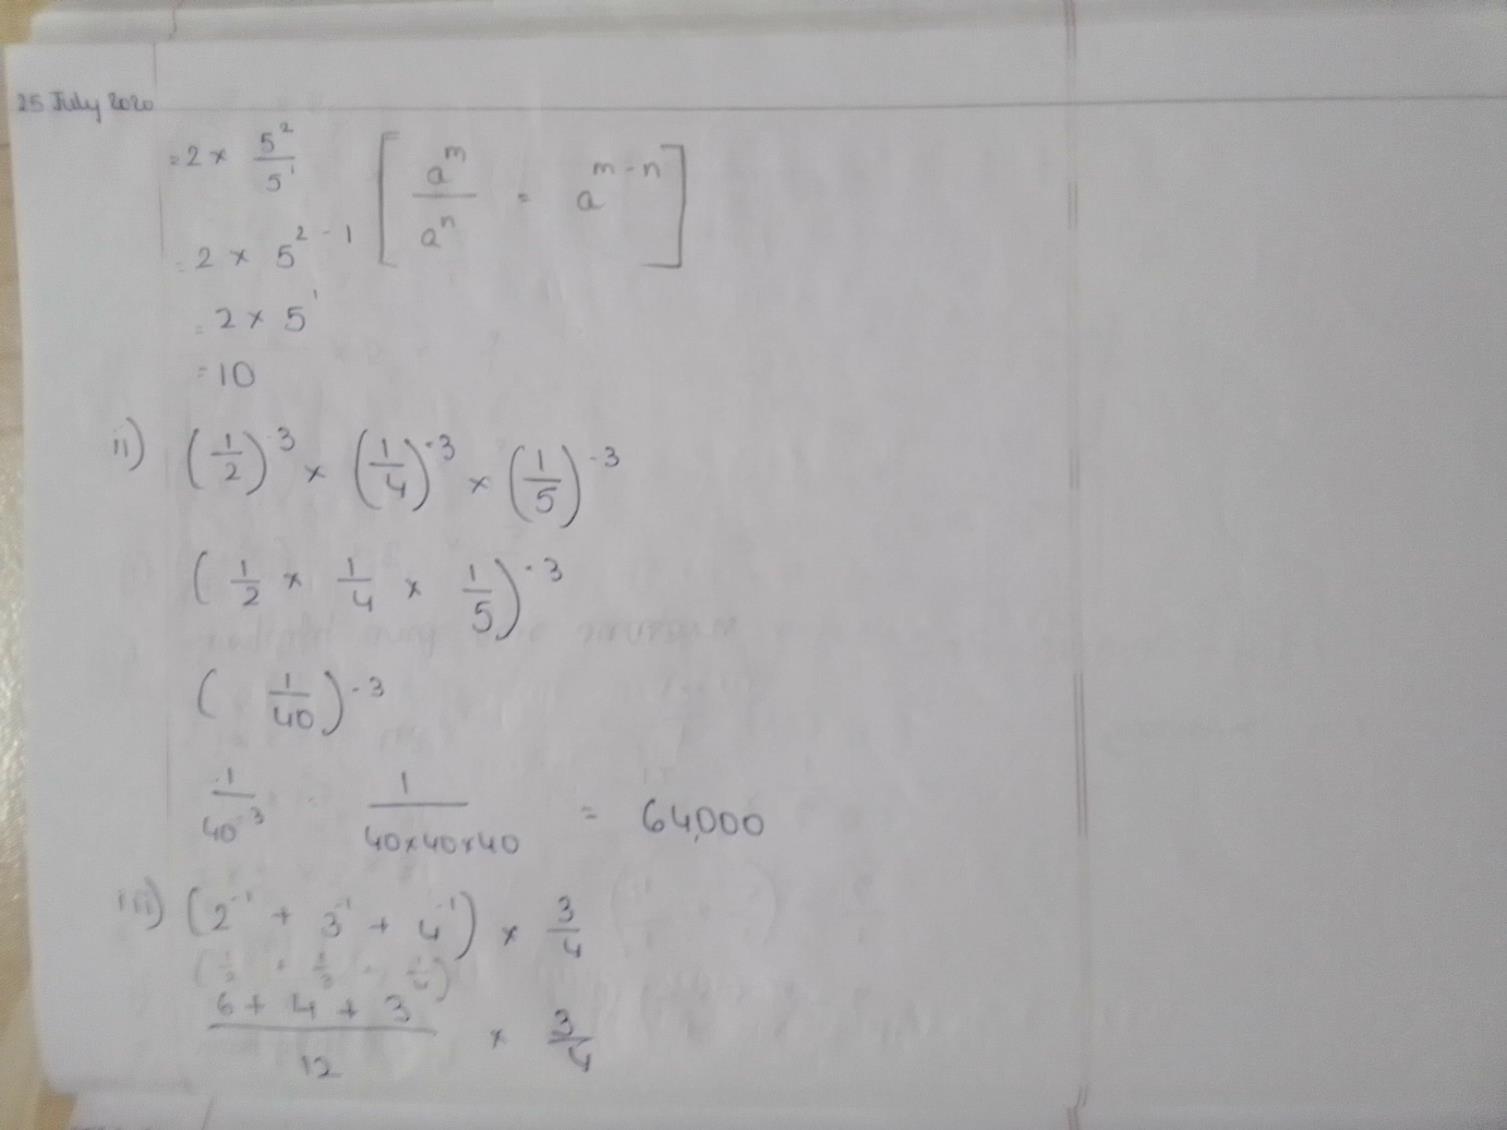 25 July 2020
= 2 × 5²/5¹ [a^m/a^n = a^(m-n)]
= 2 × 5^(2-1)
= 2 × 5¹
= 10
ii) (1/2)^-3 × (1/4)^-3 × (1/5)^-3
(1/2 × 1/4 × 1/5)^-3
(1/40)^-3
1/40^-3 1/40×40×40 = 64,000
iii) (2^-1 + 3^-1 + 4^-1) × 3/4
(1/2 + 1/3 + 1/4)
6 + 4 + 3/12 × 3/4